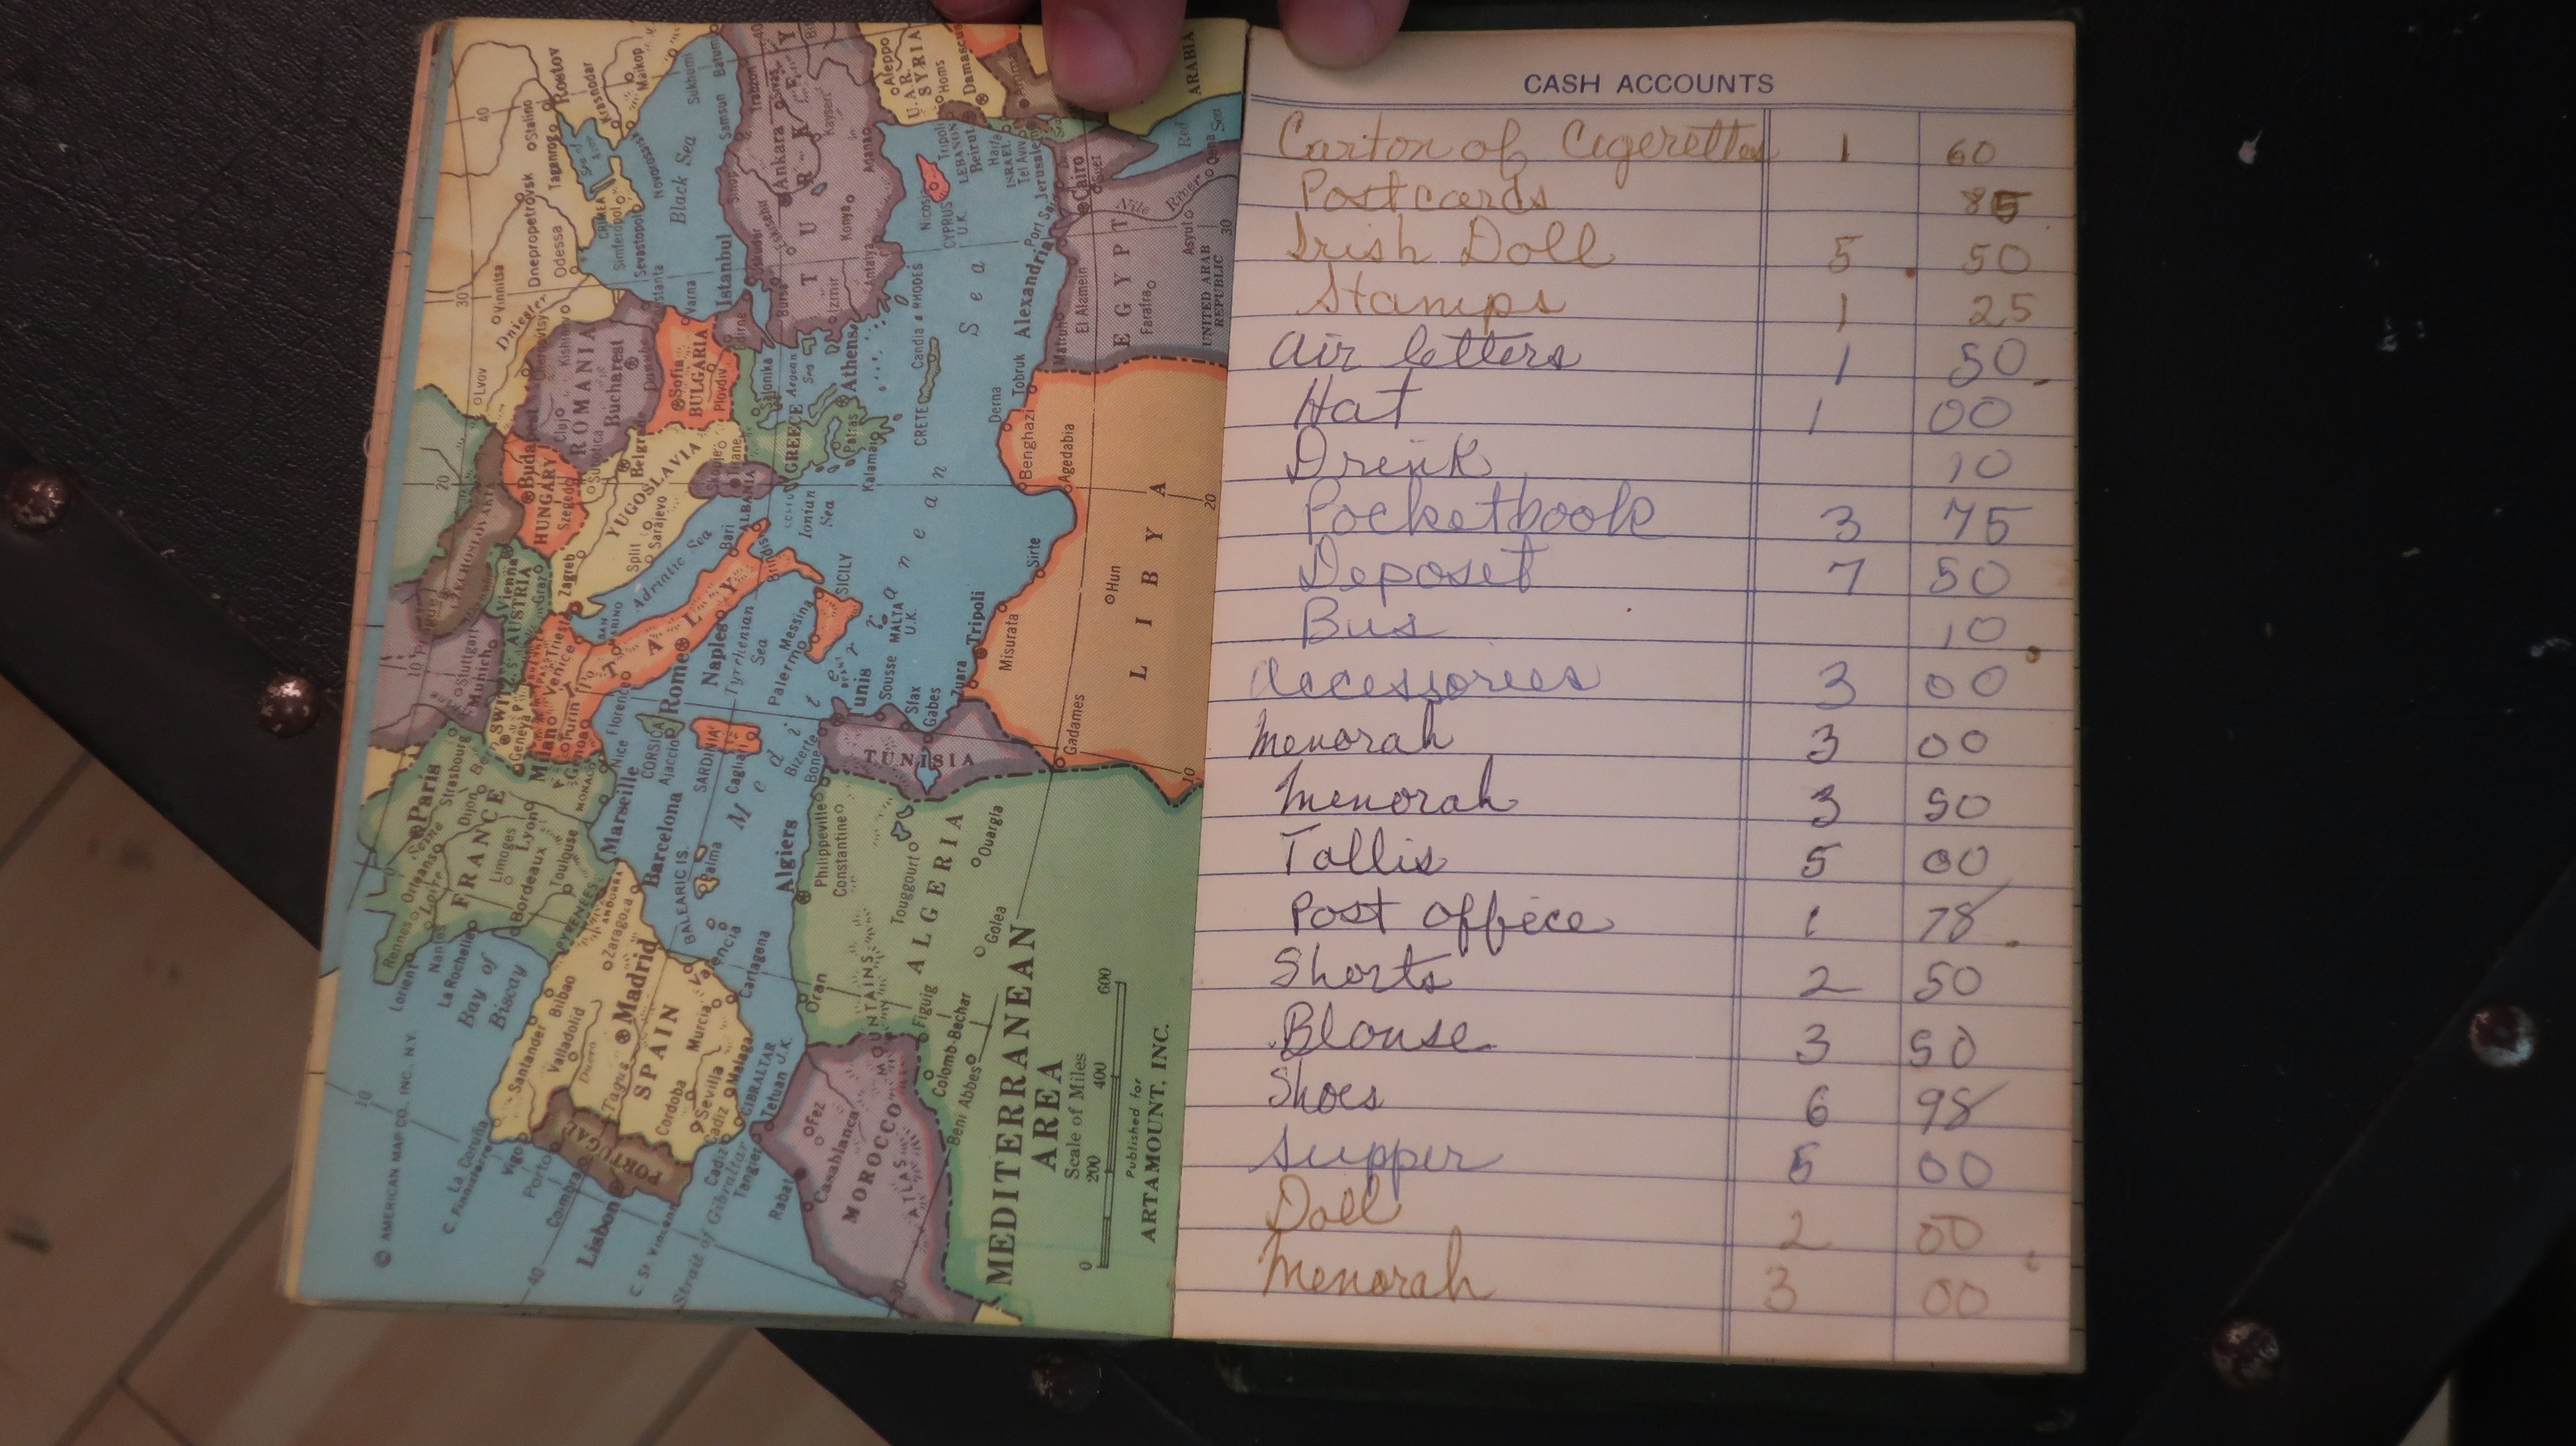 CASH ACCOUNTS
Carton of Cigerettes 1 60
Postcards 85
Irish Doll 5 . 50
Stamps 1 25
Air letters 1 50
Hat 1 00
Drink 10
Pocketbook 3 75
Deposit 7 50
Bus 10
Accessories 3 00
Menorah 3 00
Menorah 3 50
Tallis 5 00
Post office 1 78
Shorts 2 50
Blouse 3 50
Shoes 6 98
Supper 5 00
Doll 2 00
Menorah 3 00
MEDITERRANEAN
AREA
Scale of Miles
0 200 400 600
Published for
ARTAMOUNT, INC.
© AMERICAN MAP CO., INC., N.Y.
Black Sea
Mediterranean Sea
Adriatic Sea
Tyrrhenian Sea
Ionian Sea
Bay of Biscay
Strait of Gibraltar
Red Sea
Nile River
TURKEY
Ankara
Istanbul
Konya
Adana
Antalya
Izmir
U.A.R.
SYRIA
Aleppo
Homs
Damascus
ARABIA
LEBANON
Beirut
Tripoli
ISRAEL
Haifa
Tel Aviv
Jerusalem
Nicosia
CYPRUS
U.K.
EGYPT
UNITED ARAB
REPUBLIC
Cairo
Suez
Asyut
Farafra
El Alamein
Alexandria
Matruh
Port Said
Rostov
Krasnodar
Maikop
Stalino
Taganrog
Dnepropetrovsk
Odessa
Vinnitsa
Dnieper
Lvov
CRIMEA
Simferopol
Sevastopol
Novorossisk
Sukhumi
Batum
Samsun
ROMANIA
Bucharest
Cluj
BULGARIA
Sofia
Plovdiv
Varna
GREECE
Athens
Salonika
Patras
Kalamai
CRETE
Candia
RHODES
YUGOSLAVIA
Sarajevo
Split
Zagreb
ALBANIA
HUNGARY
Szeged
CZECHOSLOVAKIA
AUSTRIA
Vienna
Graz
Stuttgart
Munich
ITALY
Rome
Naples
Bari
Brindisi
Venice
Trieste
Florence
Turin
Milano
SAN MARINO
SICILY
Messina
Palermo
MALTA
U.K.
SARDINIA
Cagliari
CORSICA
Ajaccio
LIBYA
Tripoli
Benghazi
Derna
Tobruk
Agedabia
Sirte
Misurata
Hun
Zuara
Gadames
TUNISIA
Tunis
Sousse
Sfax
Gabes
Bizerte
ALGERIA
Algiers
Bone
Philippeville
Constantine
Touggourt
Ouargla
Golea
Oran
Figuig
Colomb-Bechar
Beni Abbes
MOROCCO
Fez
Casablanca
Rabat
Tangier
Tetuan
ATLAS MOUNTAINS
GIBRALTAR
U.K.
FRANCE
Paris
Strasbourg
Dijon
Orleans
Loire
Seine
Rennes
Nantes
Lorient
La Rochelle
Limoges
Lyon
Bordeaux
Toulouse
Marseille
Nice
MONACO
Geneva
PYRENEES
ANDORRA
SPAIN
Madrid
Barcelona
Zaragoza
Bilbao
Santander
Valladolid
Duero
Tagus
Valencia
Murcia
Cartagena
Cordoba
Sevilla
Malaga
Cadiz
BALEARIC IS.
Palma
La Coruña
C. Finisterre
Vigo
PORTUGAL
Porto
Coimbra
Lisbon
C. St. Vincent